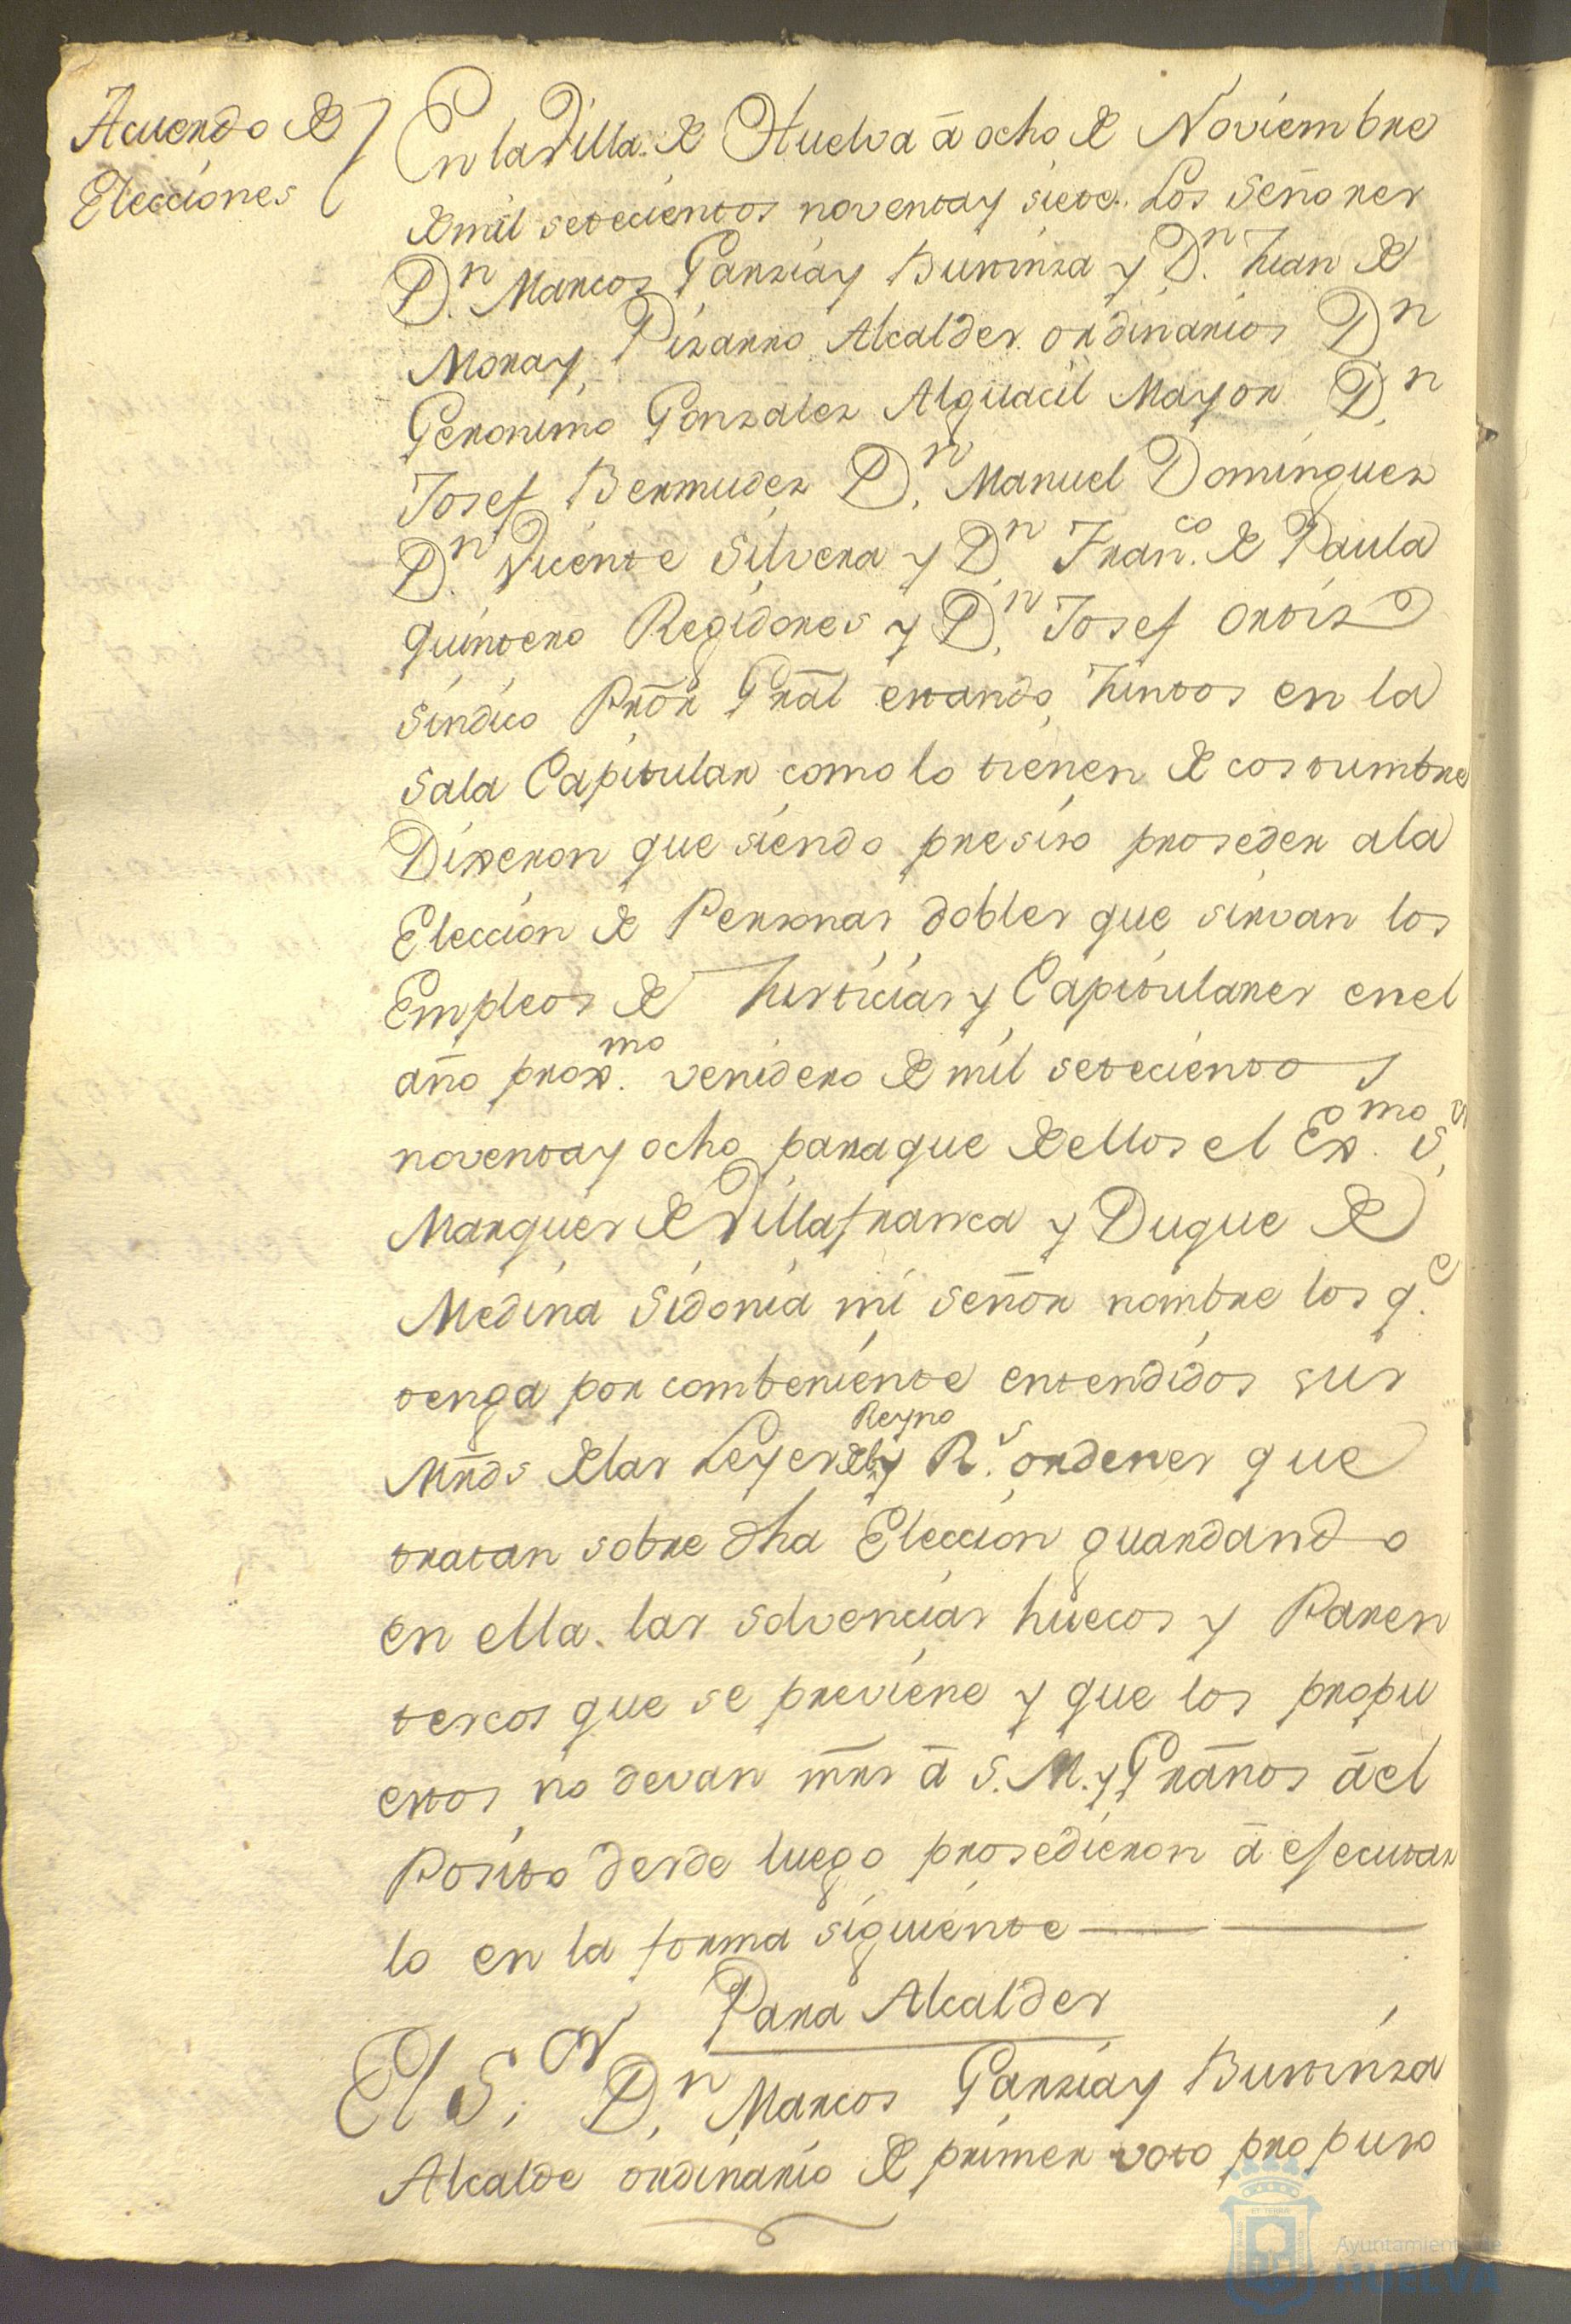 Acuerdo de
Elecciones
En la Villa de Huelva â ocho de Noviembre
de mil setecientos noventa y siete. Los Señores
Dn. Marcos Garzia y Bustinza y Dn. Juan de
Mora y Pizarro Alcaldes ordinarios Dn
Geronimo Gonzalez Alguacil Mayor Dn.
Josef Bermudez Dn. Manuel Dominguez
Dn. Vicente Silvera y Dn. Franco. de Paula
Quintero Regidores y Dn. Josef Ortiz
Sindico Prōr Grāl estando Juntos en la
Sala Capitular como lo tienen de costumbre
Dixeron que siendo presiso proseder a la
Eleccion de Personas dobles que sirvan los
Empleos de Justicias y Capitulares en el
año proxmo. venidero de mil setecientos
noventa y ocho para que de ellos el Exmo. Sr.
Marques de Villafranca y Duque de
Medina Sidonia mi Señor nombre los qe.
tenga por combeniente entendidos sus
Mrds de las Leyes del Reyno y Rs. ordenes que
tratan sobre dha Eleccion guardando
en ella las solvencias huecos y Paren
tescos que se previene y que los propu
estos no devan mrs â S. M. y Granos â el
Posito desde luego prosedieron â efecutar
lo en la forma siguiente
Para Alcaldes
El Sor. Dn. Marcos Garzia y Bustinza
Alcalde ordinario de primer voto propuso
Ayuntamiento de
HUELVA